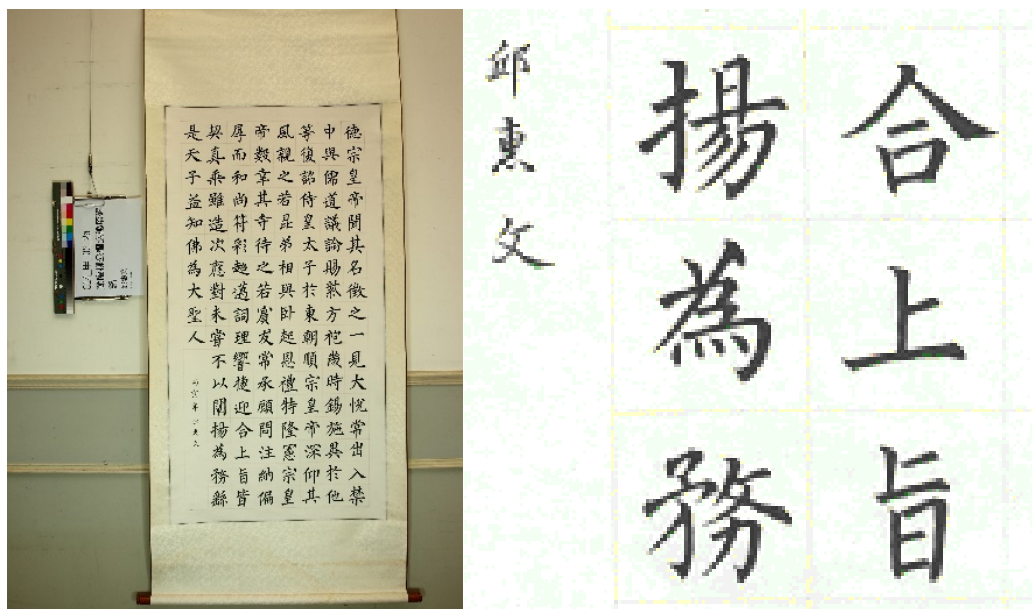 德宗皇帝聞其名徵之一見大悅常出入禁
中與儒道議論賜紫方袍歲時錫施異於他
等復詔侍皇太子於東朝順宗皇帝深仰其
風親之若昆弟相與卧起恩禮特隆憲宗皇
帝數幸其寺待之若賓友常承顧問注納偏
厚而和尚符彩超邁詞理響捷迎合上旨皆
契真乘雖造次應對未嘗不以闡揚為務繇
是天子益知佛為大聖人
合上旨
揚為務
邱惠文